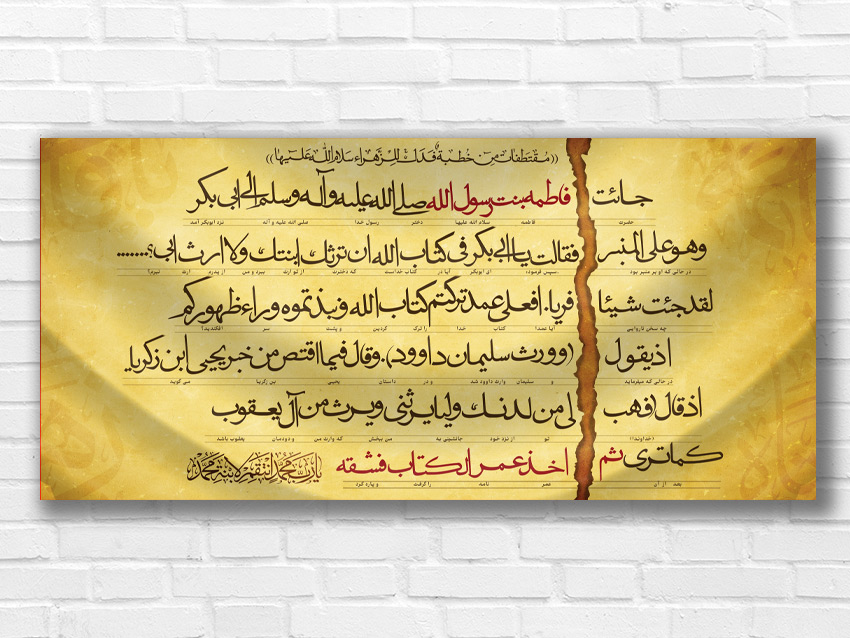 ((مقتطفات من خطبة فدك للزهراء سلام الله عليها))
جائت فاطمه بنت رسول الله صلی الله علیه و آله وسلم الی ابی بکر
حضرت فاطمه سلام الله علیها دختر رسول خدا صلی الله علیه و آله نزد ابوبکر آمد
وهو علی المنبر فقالت یا ابی بکر فی کتاب الله ان ترثک ابنتک ولا ارث ابی؟.......
در حالی که او بر منبر بود سپس فرمود: ای ابوبکر آیا در کتاب خداست که دخترت از تو ارث ببرد و من از پدرم ارث نبرم؟
لقد جئت شیئا فریا. افعلی عمد ترکتم کتاب الله و نبذتموه وراء ظهورکم
چه سخن ناروایی آیا عمدا کتاب خدا را ترک کردین و پشت سر افکندید؟
اذ یقول (وورث سلیمان داوود). وقال فیما اقتص من خبر یحیی ابن زکریا
در حالی که میفرماید و سلیمان وارث داوود شد و در داستان یحیی بن زکریا می گوید
اذ قال فهب لی من لدنک ولیا یرثنی ویرث من آل یعقوب
(خداوندا) تو از نزد خود جانشینی به من ببخش که وارث من و دودمان یعقوب باشد
کماتری ثم اخذ عمر الکتاب فشقه
بعد از آن عمر نامه را گرفت و پاره کرد
یارب محمد انتقم لابنة محمد